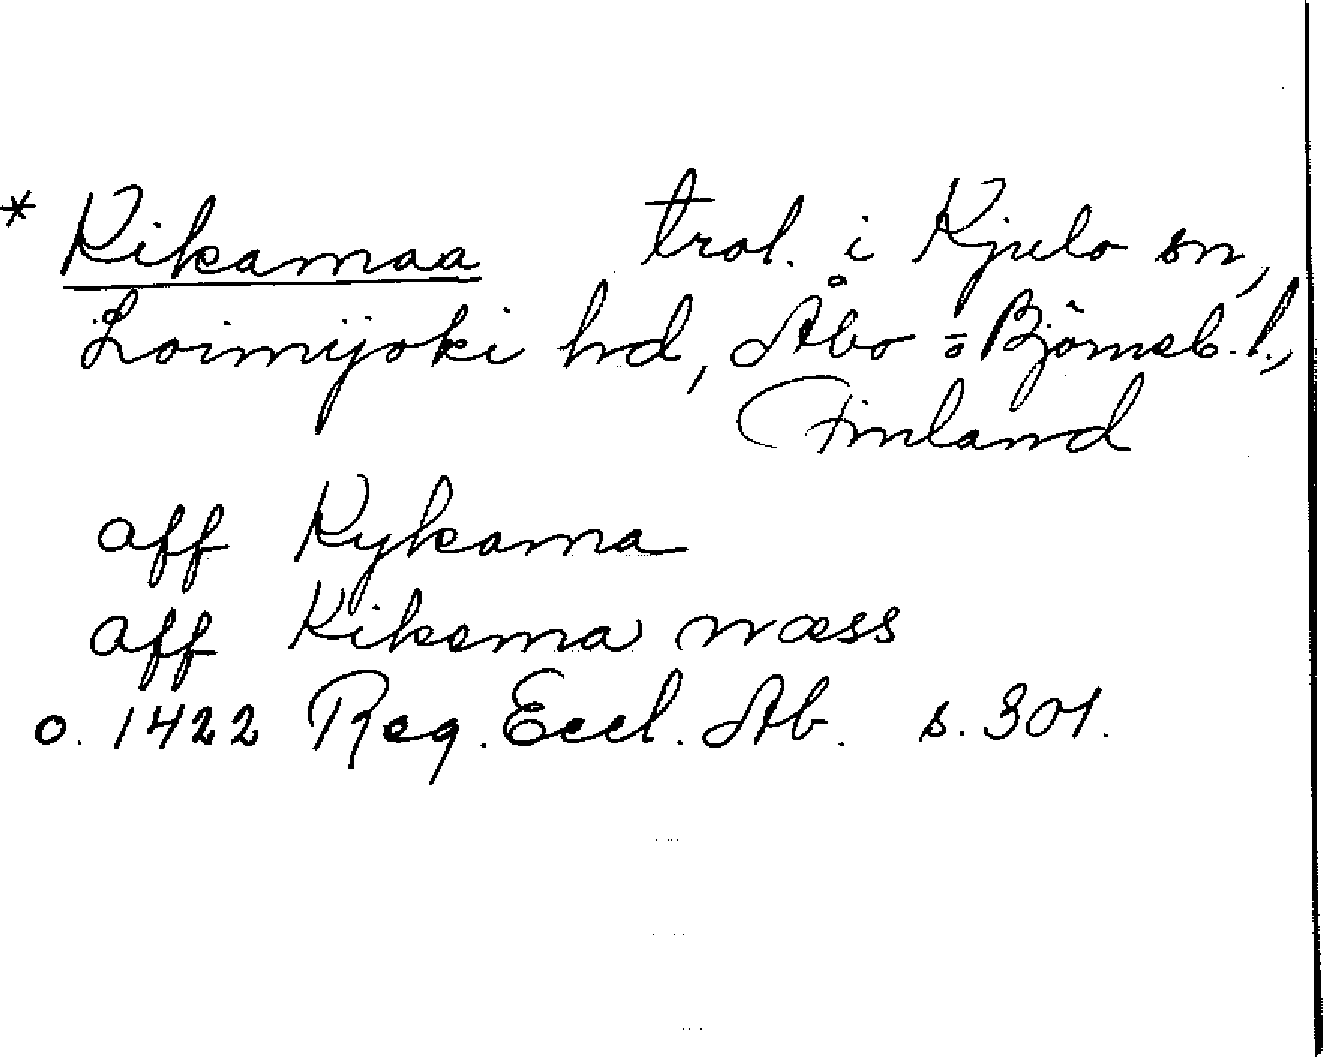 * Kikamaa trol. i Kjulo sn,
Loimijoki hd, Åbo = Björneb. l.,
Finland
aff Kykama
aff Kikama næss
o. 1422 Reg. Eccl. Ab. s. 301.